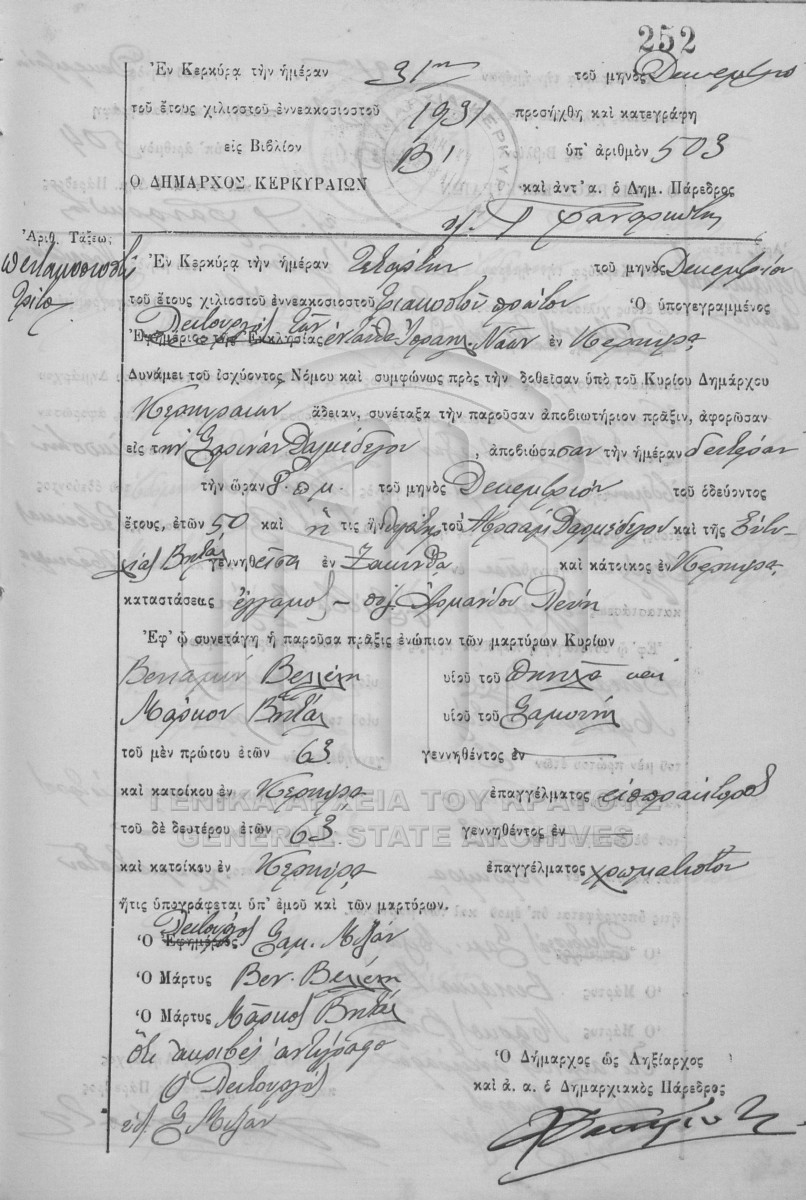 252
Ἐν Κερκύρᾳ τὴν ἡμέραν 31ην τοῦ μηνὸς Δεκεμβρίου
τοῦ ἔτους χιλιοστοῦ ἐννεακοσιοστοῦ 1931 προσήχθη καὶ κατεγράφη
εἰς Βιβλίον Β' ὑπ' ἀριθμὸν 503
Ὁ ΔΗΜΑΡΧΟΣ ΚΕΡΚΥΡΑΙΩΝ καὶ ἀντ' α. ὁ Δημ. Πάρεδρος
Ἀριθ. Τάξεως
Ἐν Κερκύρᾳ τὴν ἡμέραν Τετάρτην τοῦ μηνὸς Δεκεμβρίου
τρίτος
τοῦ ἔτους χιλιοστοῦ ἐννεακοσιοστοῦ τριακοστοῦ πρώτου Ὁ ὑπογεγραμμένος
Λειτουργὸς τῶν
Ἐφημέριος τῆς Ἐκκλησίας ἐνταῦθα Ἰσραηλ. Ναῶν ἐν Κερκύρᾳ
Δυνάμει τοῦ ἰσχύοντος Νόμου καὶ συμφώνως πρὸς τὴν δοθεῖσαν ὑπὸ τοῦ Κυρίου Δημάρχου
Κερκυραίων ἄδειαν, συνέταξα τὴν παροῦσαν ἀποβιωτήριον πρᾶξιν, ἀφορῶσαν
εἰς τὴν Δαλμέδεγου, ἀποβιώσασαν τὴν ἡμέραν δευτέραν
τὴν ὥραν π.μ. τοῦ μηνὸς Δεκεμβρίου τοῦ ὁδεύοντος
ἔτους, ἐτῶν 50 καὶ ἥτις ἦ θυγάτηρ τοῦ Ἀβραὰμ Δαλμέδεγου καὶ τῆς Εὐτυ-
χίας Βητάλ γεννηθεῖσα ἐν Ζακύνθῳ καὶ κάτοικος ἐν Κερκύρᾳ
καταστάσεως ἔγγαμος – Ἀρμάνδου Λευῆ
Ἐφ' ᾧ συνετάγη ἡ παροῦσα πρᾶξις ἐνώπιον τῶν μαρτύρων Κυρίων
Βενιαμὶν Βελλέλη υἱοῦ τοῦ καὶ
Μάρκου Βητάλ υἱοῦ τοῦ Σαμουήλ
τοῦ μὲν πρώτου ἐτῶν 63 γεννηθέντος ἐν
καὶ κατοίκου ἐν Κερκύρᾳ ἐπαγγέλματος εἰσπράκτορος
ΓΕΝΙΚΑ ΑΡΧΕΙΑ ΤΟΥ ΚΡΑΤΟΥΣ
τοῦ δὲ δευτέρου ἐτῶν 63 γεννηθέντος ἐν
GENERAL STATE ARCHIVES
καὶ κατοίκου ἐν Κερκύρᾳ ἐπαγγέλματος χρωματιστοῦ
ἥτις ὑπογράφεται ὑπ' ἐμοῦ καὶ τῶν μαρτύρων.
Λειτουργὸς
Ὁ Ἐφημέριος Σαμ. Μιζάν
Ὁ Μάρτυς Βεν. Βελλέλη
Ὁ Μάρτυς Μάρκος Βητάλ
Ὅτι ἀκριβὲς ἀντίγραφο
Ὁ Λειτουργὸς
Σ Μιζάν
Ὁ Δήμαρχος ὡς Ληξίαρχος
καὶ ἀ. α. ὁ Δημαρχιακὸς Πάρεδρος